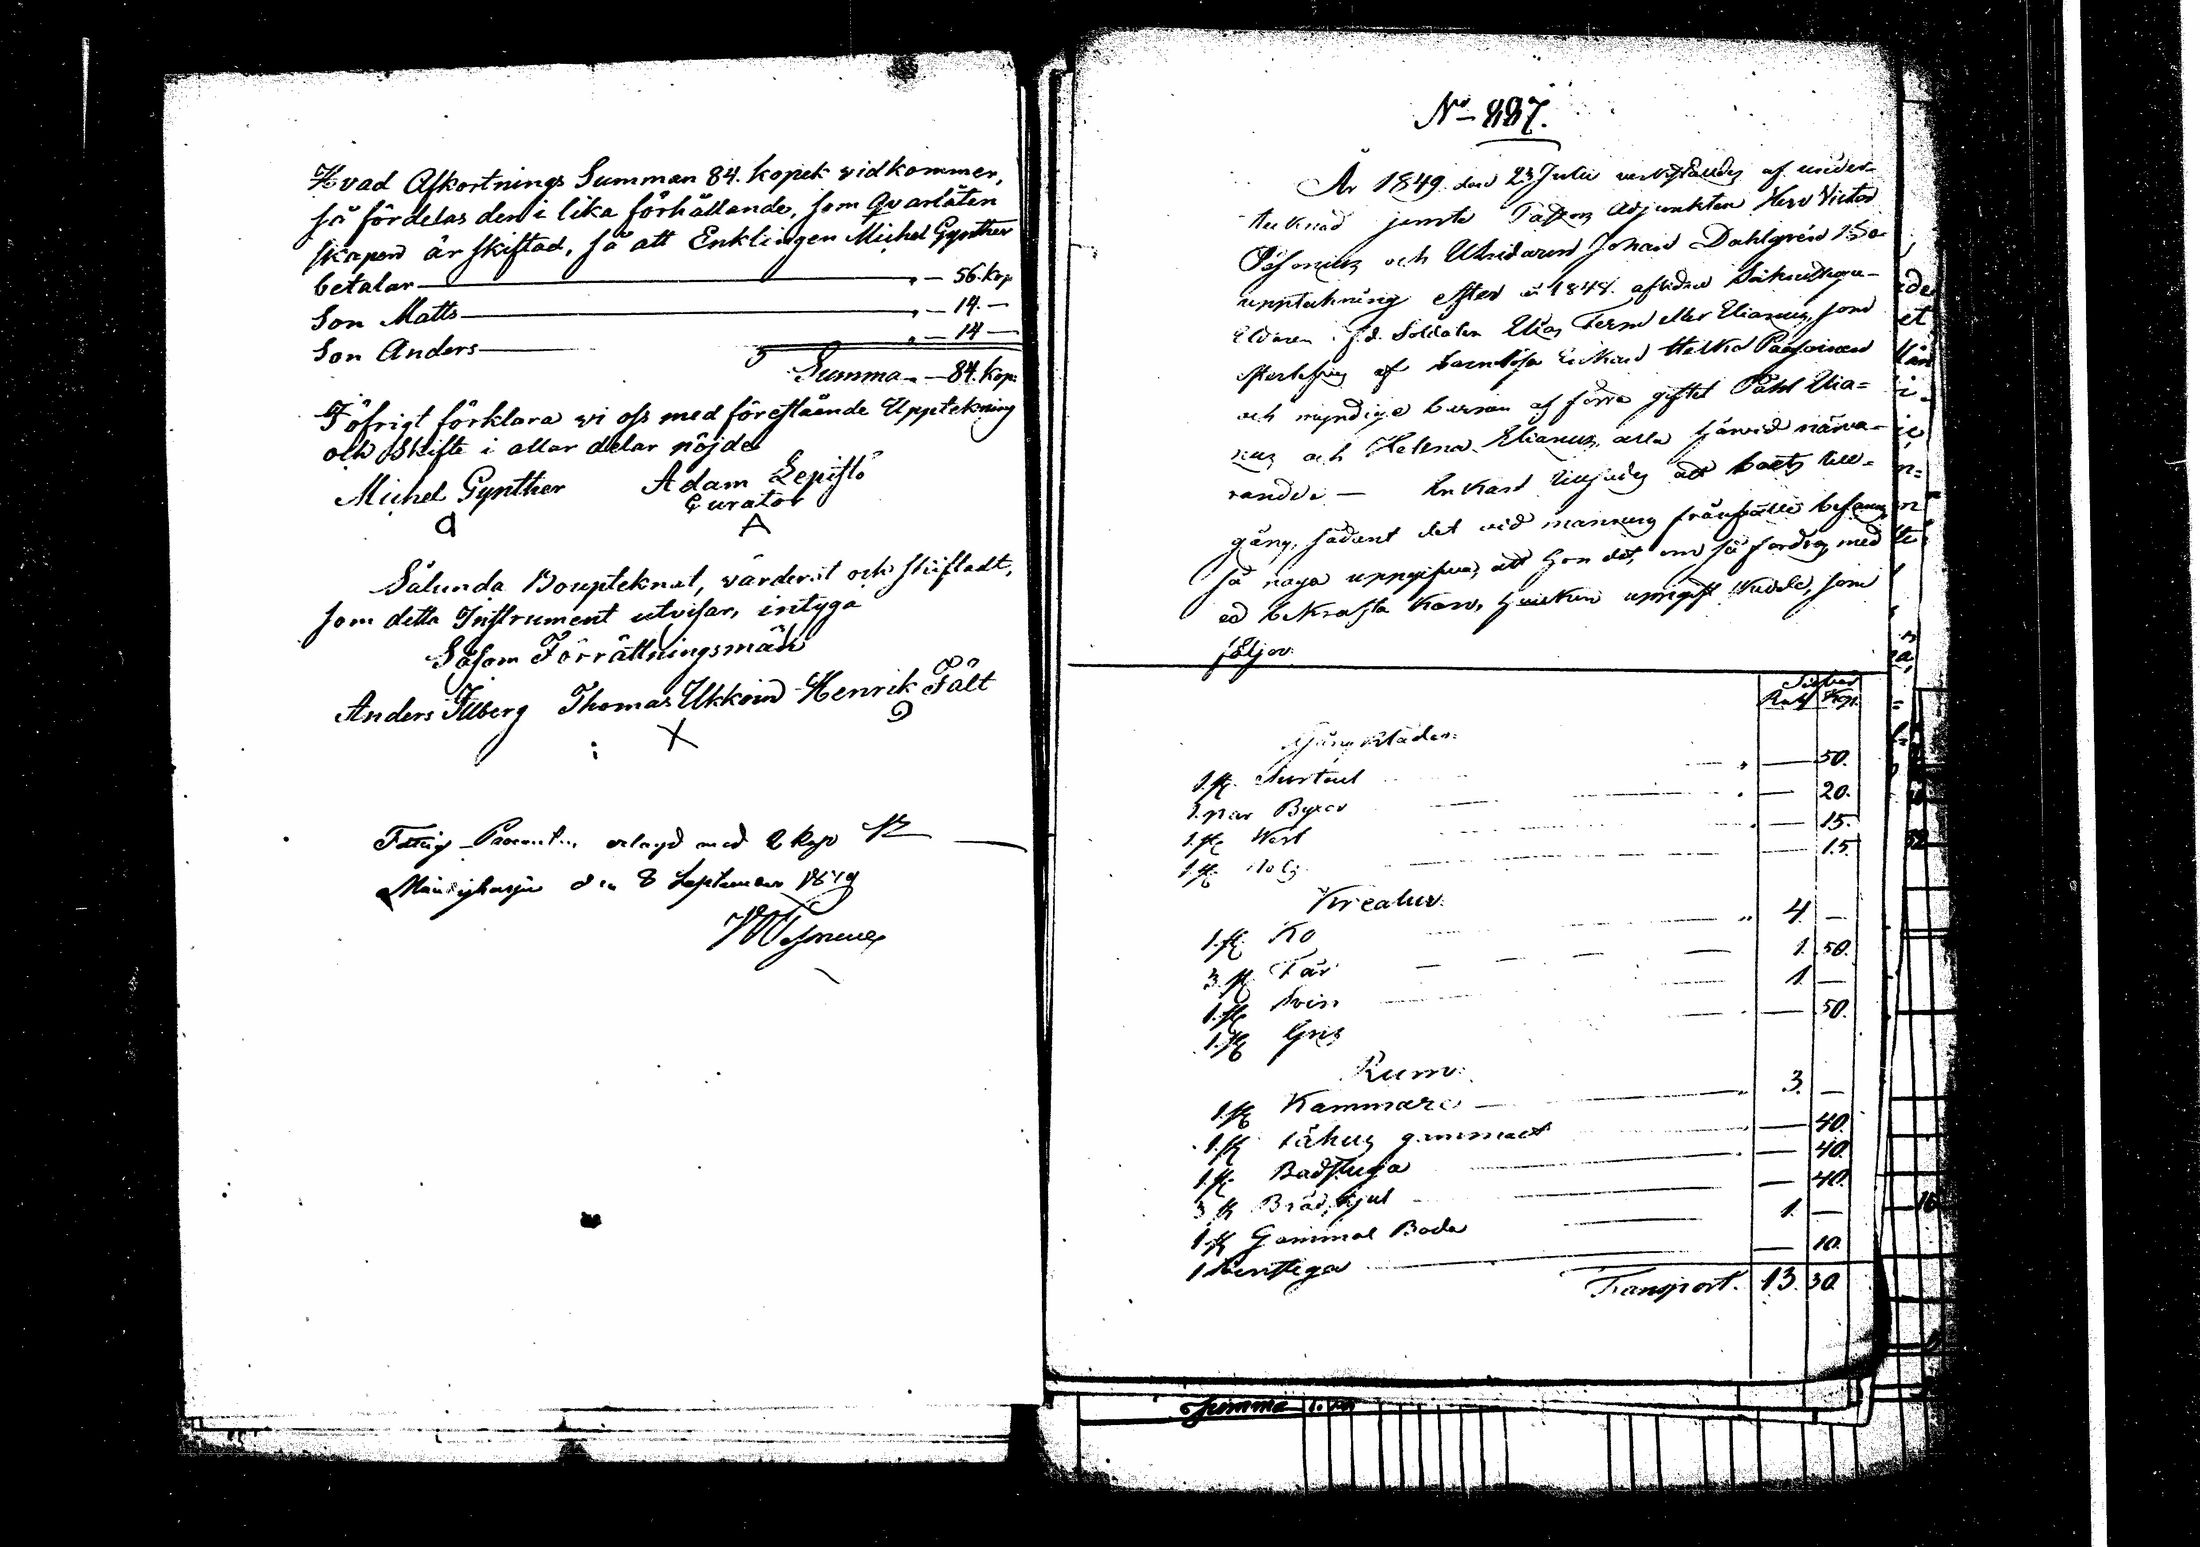 Hvad Afkortnings Summan 84. kopek vidkommer,
så fördelas den i lika förhållande, som Qvarlåten
skapen är skiftad, så att Enklingen Michel Gynther
betalar — " — 56. kop
Son Matts — " — 14. —
Son Anders — " — 14 —
Summa " — 84. kop.
I öfrigt förklara vi oss med föreståënde Upptekning
och Skifte i allar delar nöjde
Michel Gynther Adam Lepistö
Curator
Sålunda Boupteknat, värderat och skiftadt,
som detta Instrument utvisar, intyga
Såsom Förrättningsmän
Anders Illberg Thomas Ukkoin Henrik Fält
X
Fattig Procenten erlagd med 2 kop
den 8 September 1849
No 887.
År 1849. den 23 Julii verkställdes af under-
tecknad jemte Pastors Adjunkten Herr Victor
och Johan Dahlgrén Bo-
uppteckning efter år 1848. aflidne
f.d. Soldaten Elias Term eller Elianus, som
efterlefves af barnlösa Enkan
och myndige barnen af förra giftet Påhl Elia=
nus och Helena Elianus, alla härvid närva-
rande — Enkan tillsades att boets till-
gång, sådant det vid mannens frånfälle befanns
så noga uppgifva, att hon det, om så fordras med
ed bekräfta kan, hvilken uppgift skedde, som
följer.
Silfver
Rub Kop.
Gångkläder:
1. st. Surtout — " — 50.
1. par Byxor — " — 20.
1. st. West — " — 15.
1. st. — 15.
Kreatur:
1. st. Ko — " 4. —
3. st. Får — 1. 50.
1. st. Svin — 1. —
1. st. Gris — 50.
Rum:
1. st. Kammare — " 3. —
1. st. Fähus gammalt — 40.
1. st. Badstuga — 40.
3 st Brädskjul — 40.
1. st Gammal Boda — 1. —
1 — 10.
Transport. 13. 30.
Summa